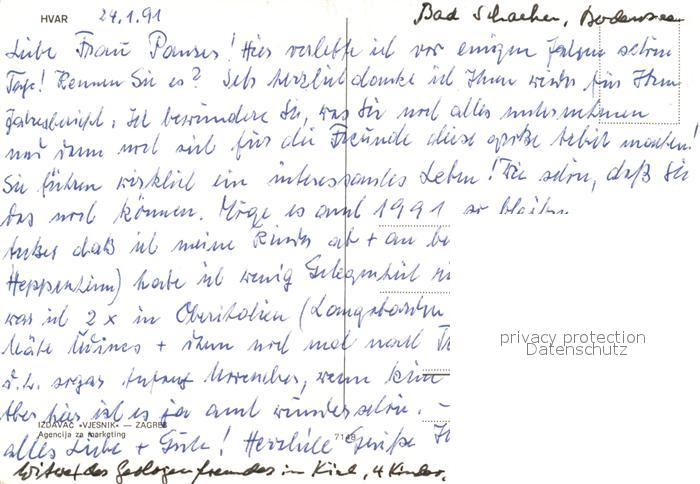 HVAR 24.1.91 Bad Schachen, Bodensee
Liebe Frau Panses! Hier verlebte ich vor einigen Jahren schöne
Tage! Kennen Sie es? Sehr herzlich danke ich Ihnen wieder für Ihren
Jahresbericht. Ich bewundere Sie, was Sie noch alles unternehmen
und dann noch sich für die Freunde diese große Arbeit machen!
Sie führen wirklich ein interessantes Leben! Wie schön, daß Sie
das noch können. Möge es auch 1991 so bleiben.
Außer daß ich meine Kinder ab + an be
Heppenheim) hatte ich wenig Gelegenheit
war ich 2 x in Oberitalien (Langobarden
+ dann noch mal nach
u. sogar Anfang November, wenn
Aber hier ist es ja auch wunderschön. –
IZDAVAČ »VJESNIK« — ZAGREB
Agencija za marketing
alles Liebe + Gute! Herzliche Grüße
Witwe des Geologenfreundes in Kiel, 4 Kinder.
privacy protection
Datenschutz